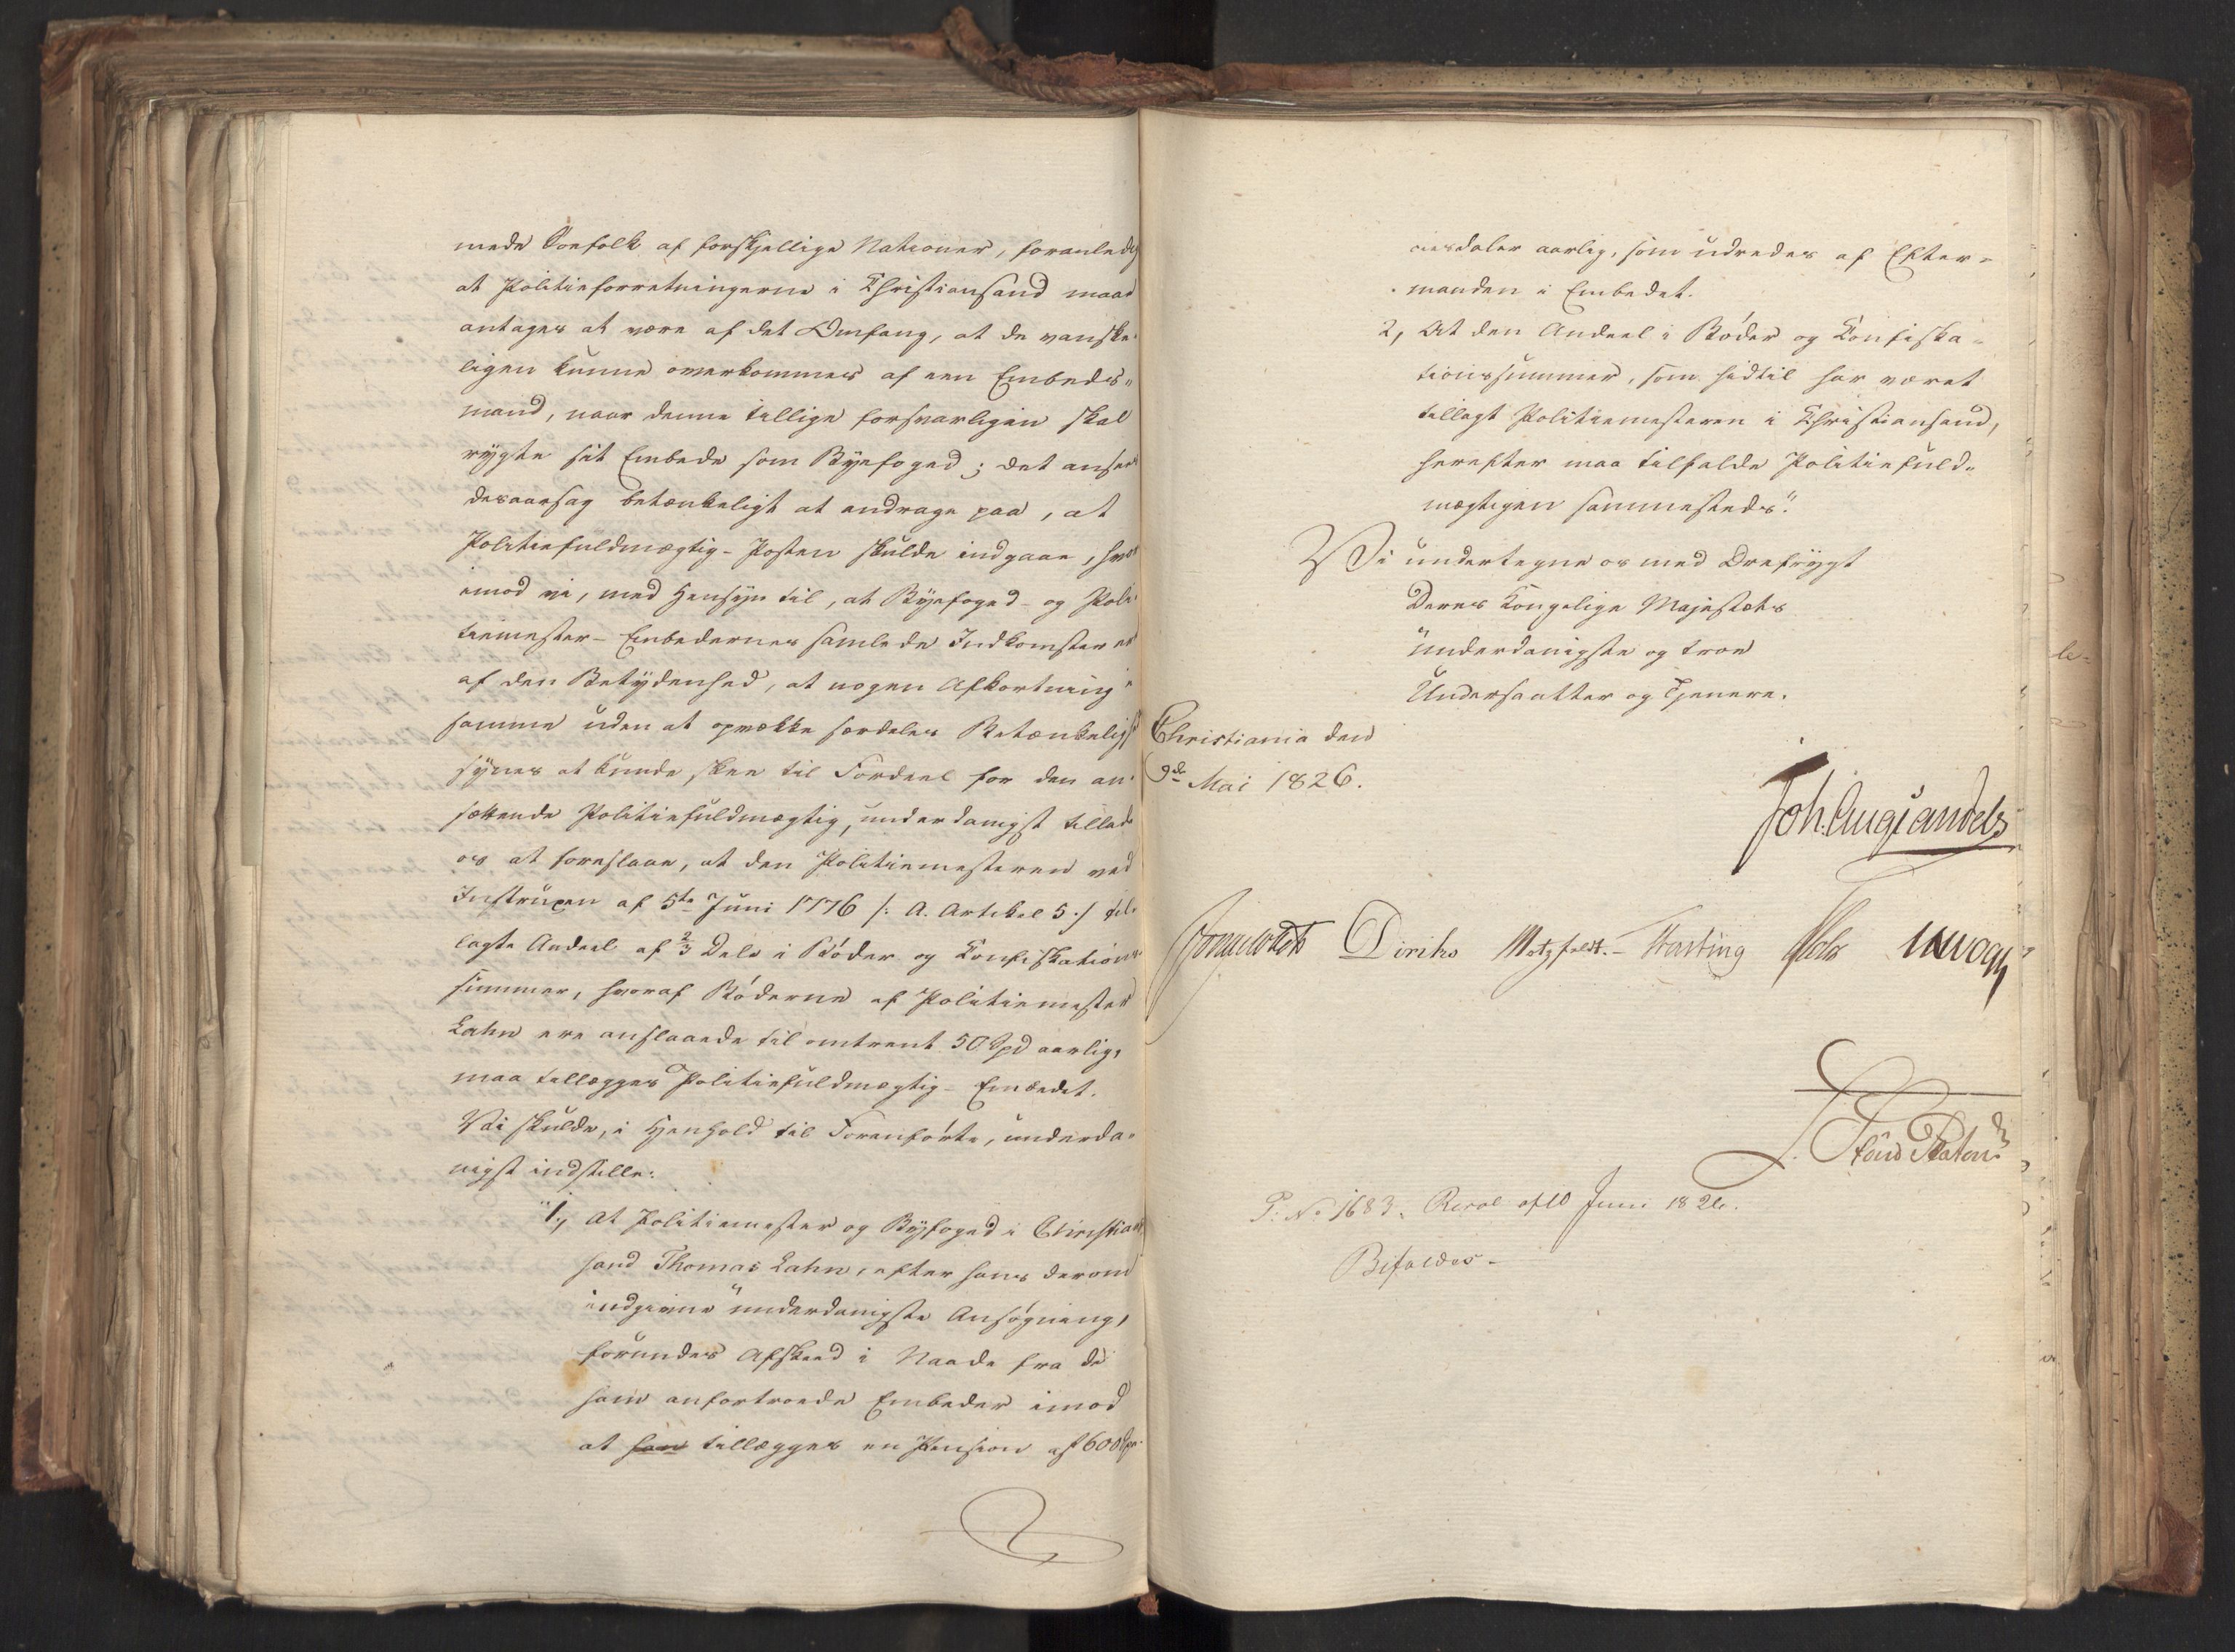 mede Søefolk af forskjellige Nationer, foranledig
at Politieforretningerne i Christiansand maae
antages at være af det Omfang, at de vanske-
ligen kunne overkommes af een Embeds-
mand, naar denne tillige forsvarligen skal
rygte sit Embede som Byefoged; det ansees
desaarsag betænkeligt at andrage paa, at
Politiefuldmægtig-Posten skulde indgaae, hvor
imod vi, med Hensyn til, at Byefoged- og Poli-
tiemester-Embedernes samlede Indkomster er
af den Betydenhed, at nogen Afkortning i
samme uden at opvække særdeles Betænkelighed
synes at kunde skee til Fordeel for den an-
sættende Politiefuldmægtig, underdanigst tillade
os at foreslaae, at den Politiemesteren ved
Instruxen af 5te Juni 1776 /: A. Artikel 5 :/ til-
lagte Andeel af 2/3 Dele i Bøder og Confiskations-
summer, hvoraf Bøderne af Politiemester
Lahn ere anslaaede til omtrent 50 Spd aarlig,
maa tillægges Politiefuldmægtig-Embedet.
Vi skulde, i Henhold til Foranførte, underda-
nigst indstille:
"1, At Politiemester og Byfoged i Christian
sand Thomas Lahn, efter hans derom
indgivne underdanigste Ansøgning,
forundes Afskeed i Naade fra de
ham anfortroede Embeder imod
at ham tillægges en Pension af 600 Spe-
ciesdaler aarlig, som udredes af Efter-
manden i Embedet.
2, At den Andeel i Bøder og Confiska-
tionssummer, som hidtil har været
tillagt Politiemesteren i Christiansand,
herefter maa tilfalde Politiefuld-
mægtigen sammesteds."
Vi undertegne os med Ærefrygt
Deres Kongelige Majestæts
underdanigste og troe
Undersaatter og Tjenere.
Christiania den
9de Mai 1826.
Joh. Aug Sandels
Diriks Motzfeldt. Fasting Holst
P. No 1683. Resol af 10 Juni 1826.
Bifaldes -